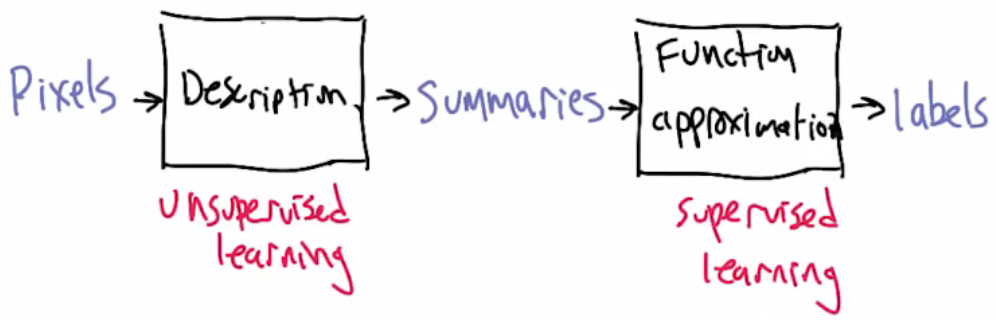 Pixels → Description → Summaries → Function
approximation → labels
unsupervised
learning
supervised
learning